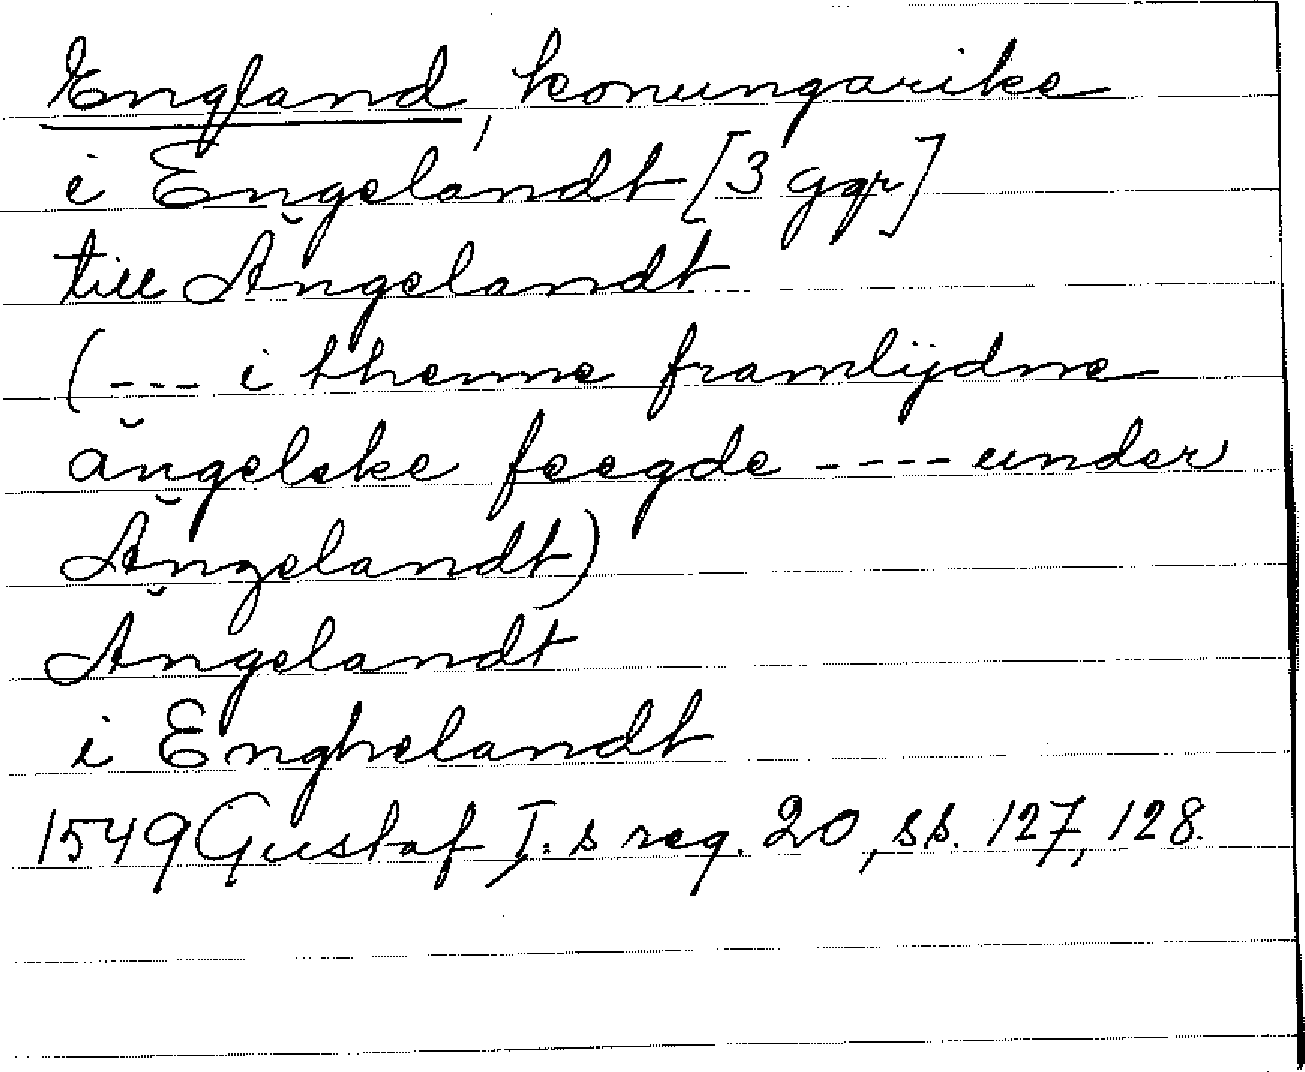 England, konungarike
i Engelandt [3 ggr]
till Ăngelandt
(--- i thenne framlijdne
ăngelske feegde ---- under
Ăngelandt)
Ăngelandt
i Enghelandt
1549 Gustaf I:s reg. 20, ss. 127, 128.